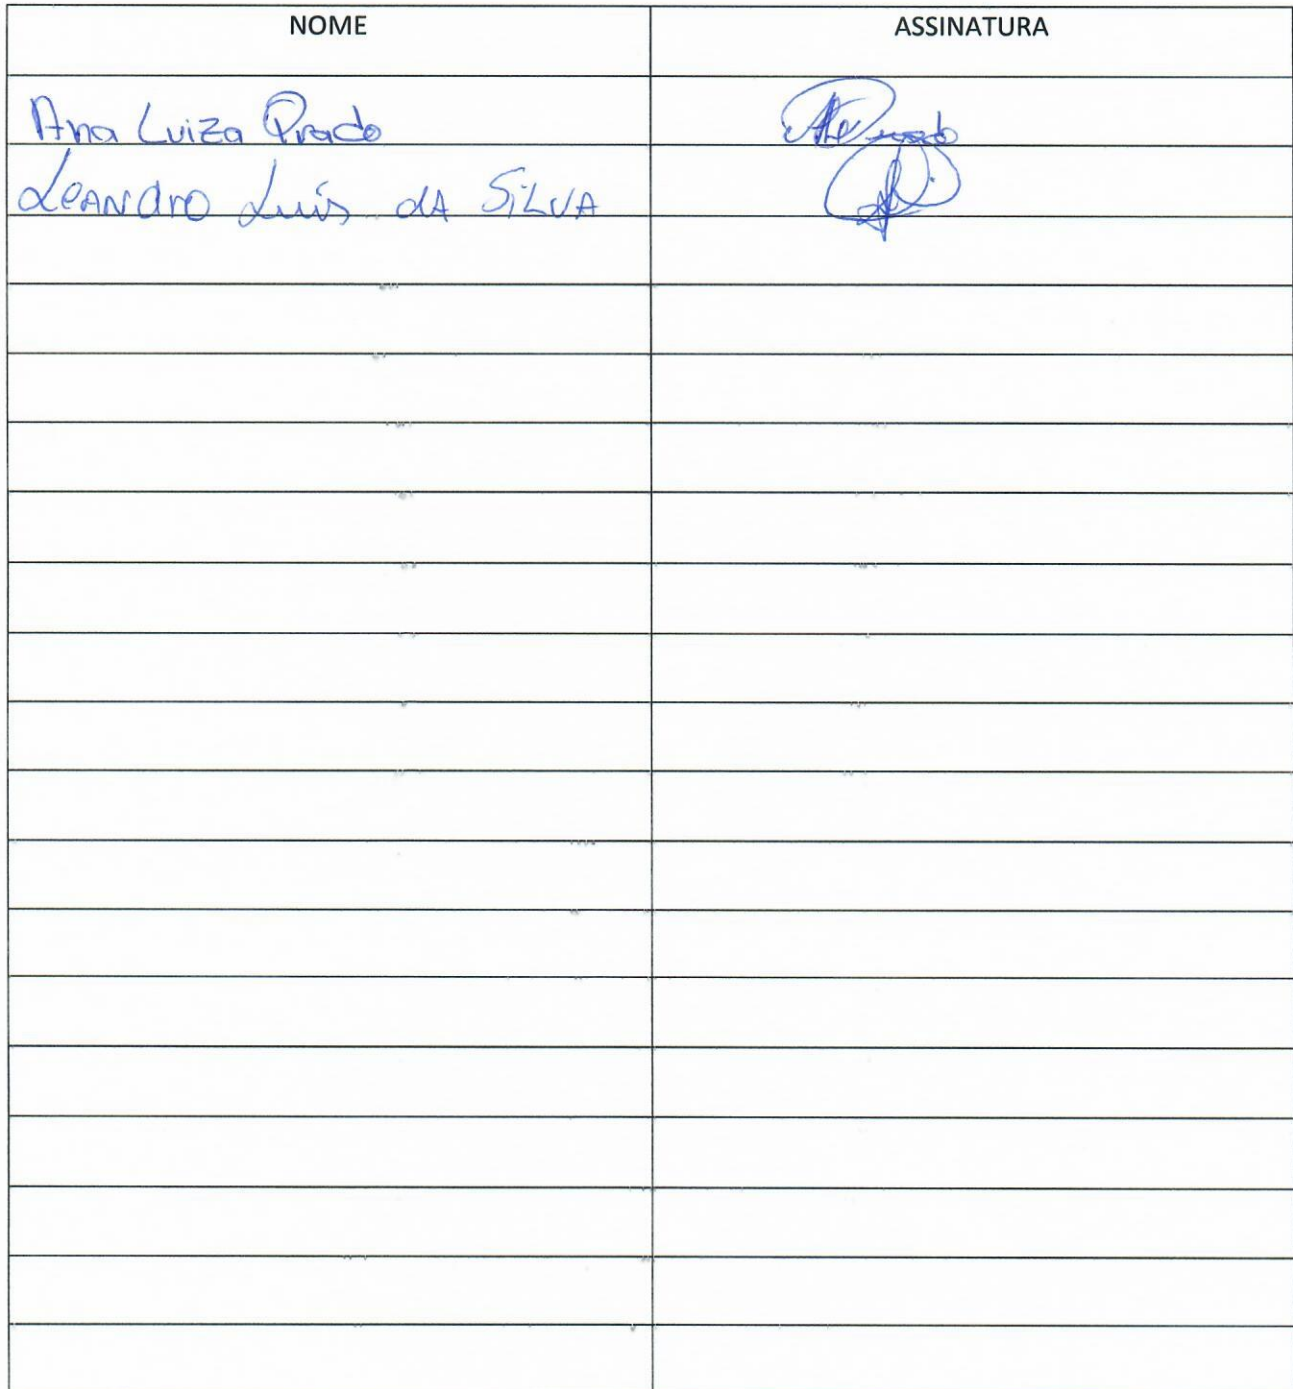 NOME ASSINATURA
Ana Luiza Prado
Leandro Luís da Silva